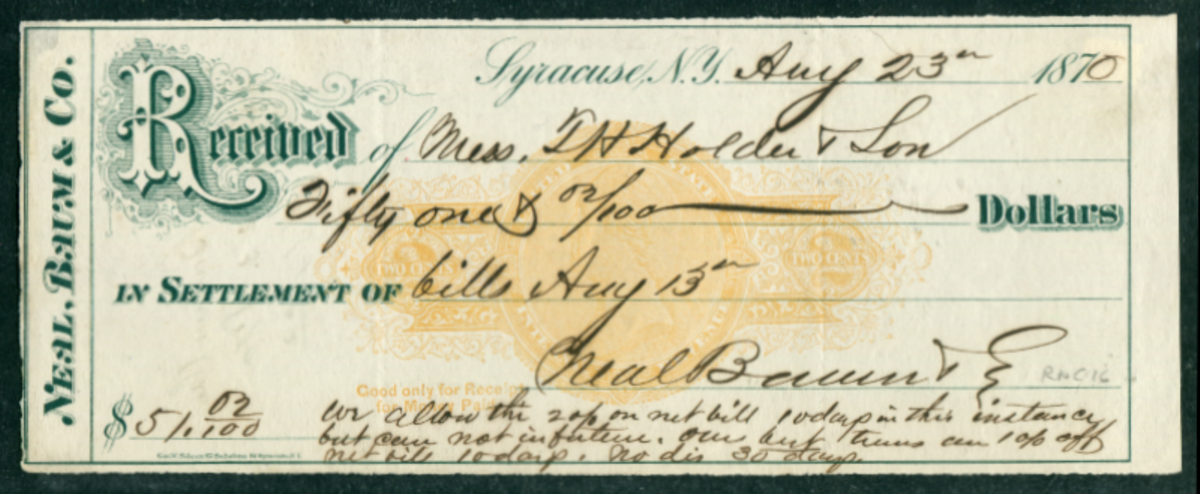 NEAL, BAUM & CO.
Syracuse, N.Y. Aug 23rd 1870
Received of Mess. T H Holder & Son
Fifty one & 02/100 Dollars
IN SETTLEMENT OF bills Aug 13th
TWO CENTS TWO CENTS
Neal Baum & C
RN-C16
Good only for Receipt
for Money Paid
$51.02/100
we allow the 2 op on net bill 10 days in this instance
but can not in future. Our terms are 1 op off
net bill 10 days. No dis 30 days